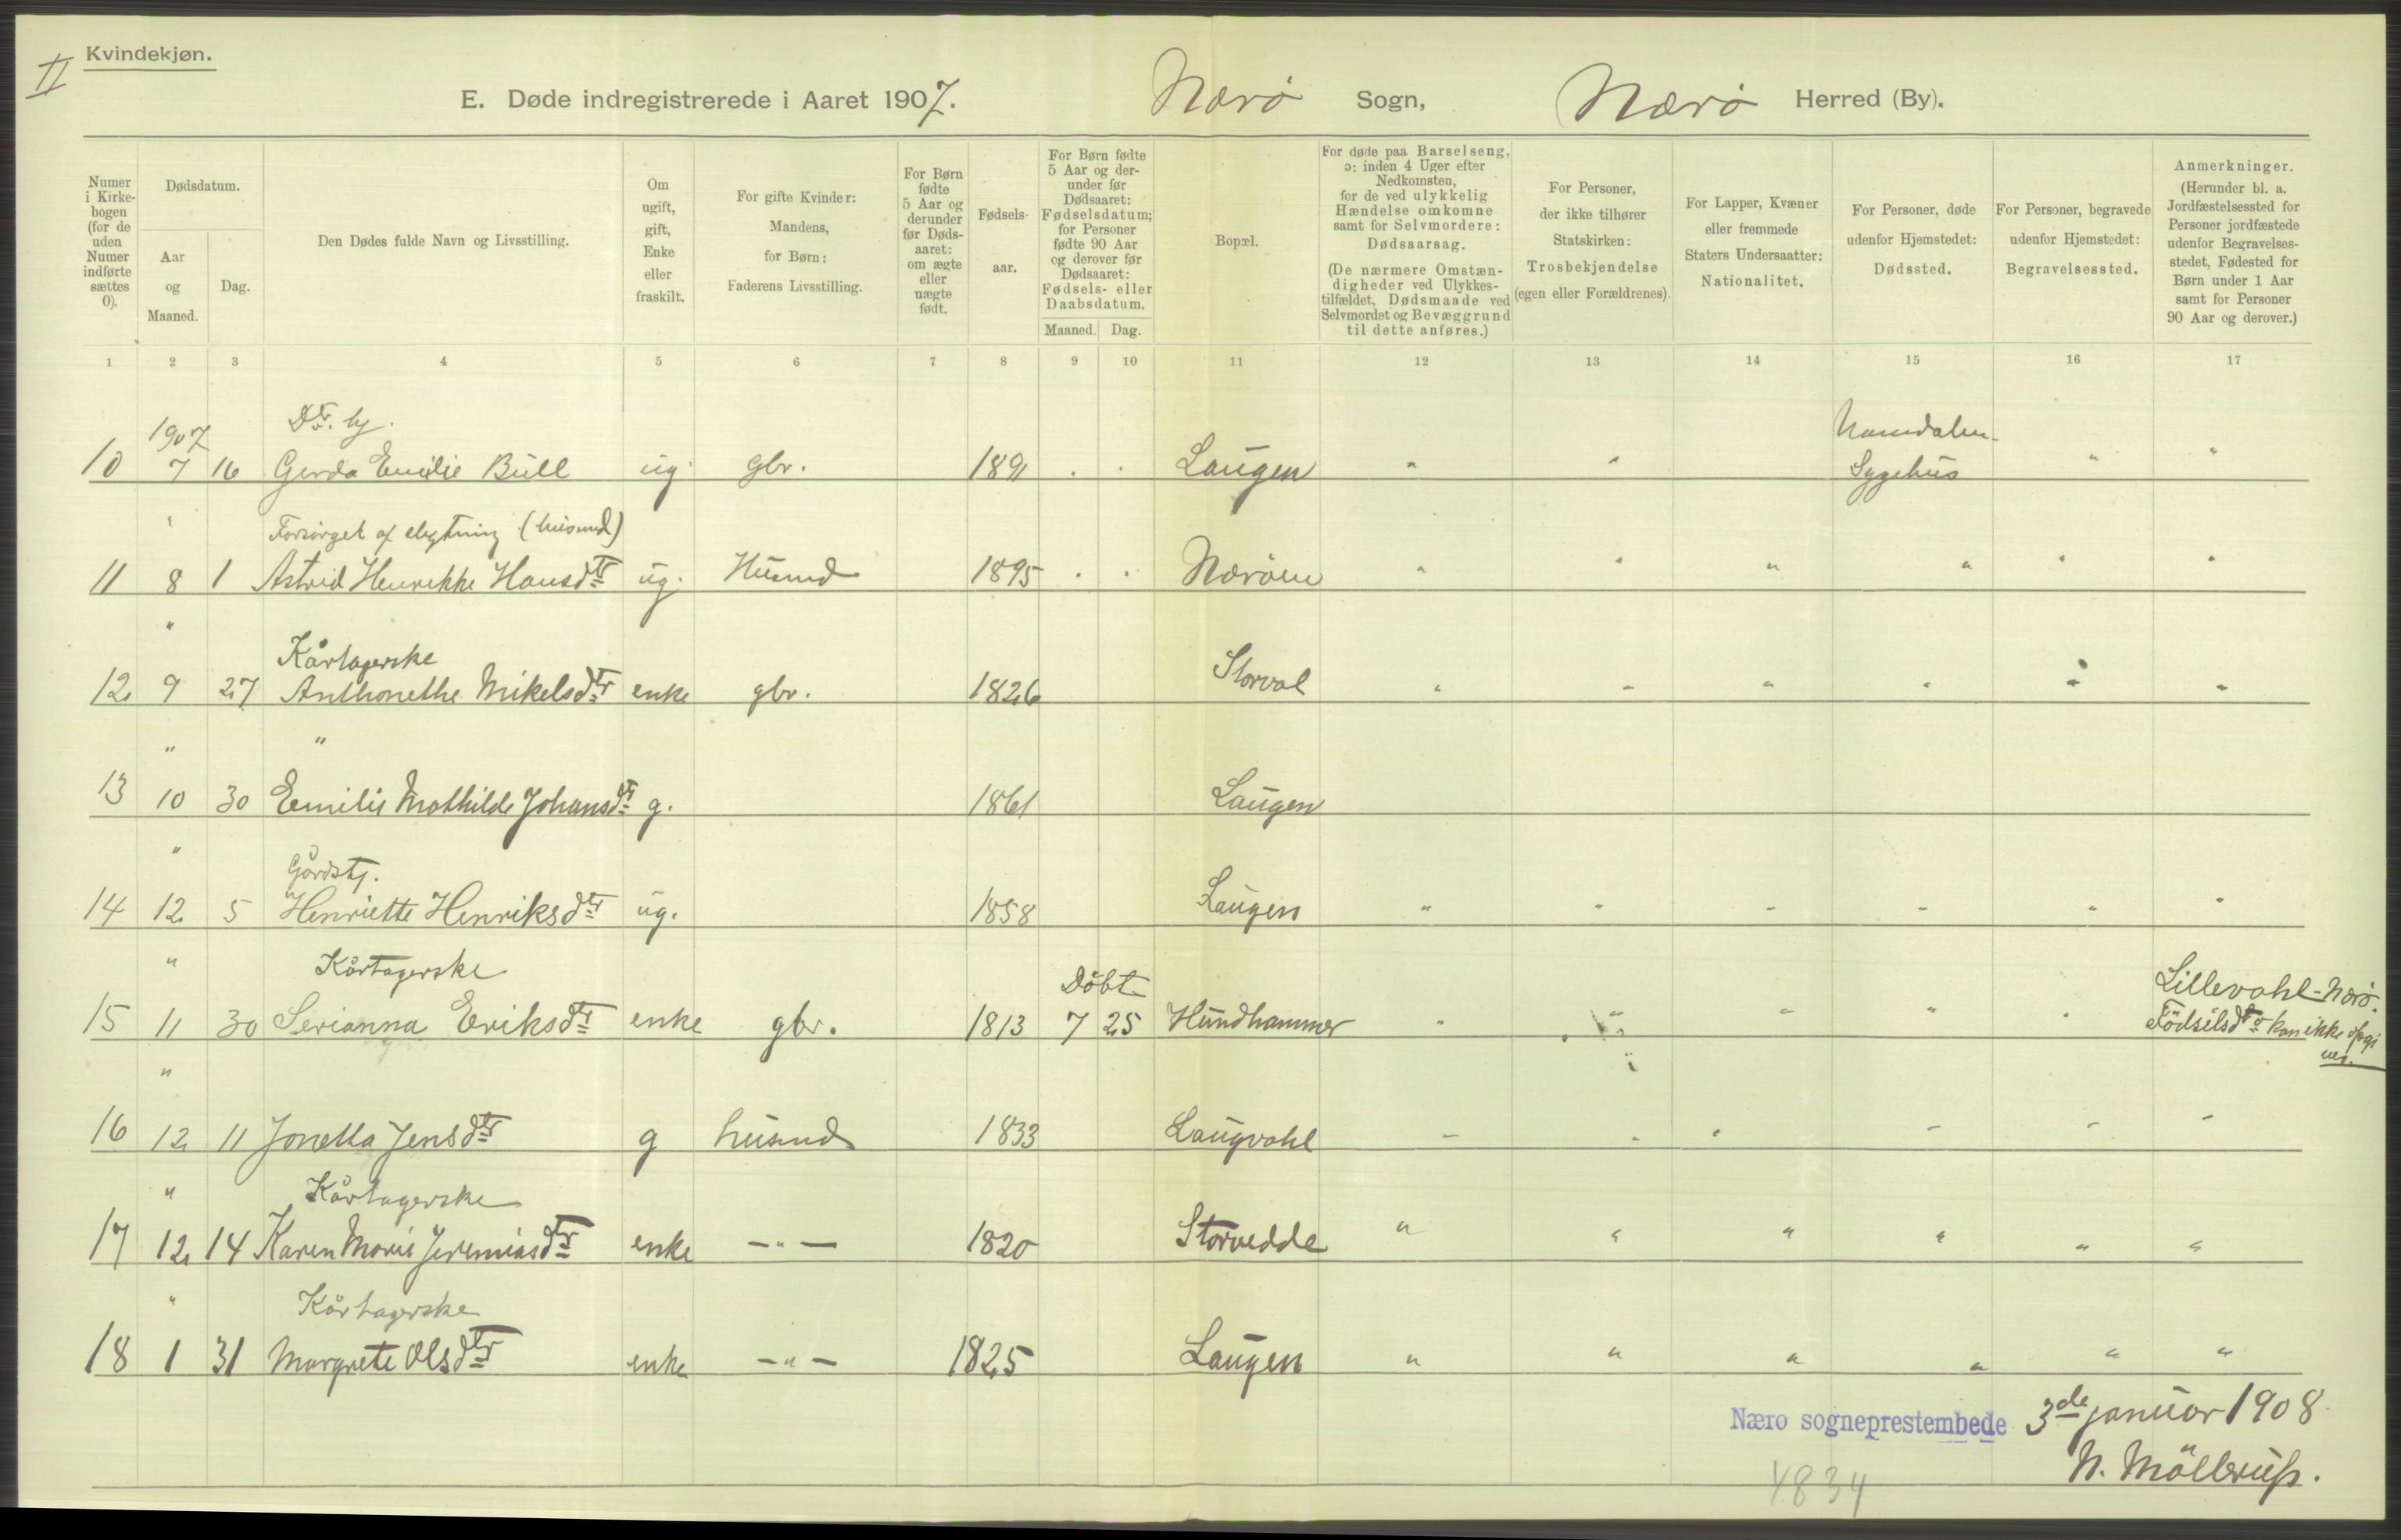 II
Kvindekjøn.
E. Døde indregistrerede i Aaret 1907. Nærö Sogn, Nærö Herred (By).
Numer i Kirkebogen (for de uden Numer indførte sættes 0).
Dødsdatum.
Aar og Maaned.
Dag.
Den Dødes fulde Navn og Livsstilling.
Om ugift, gift, Enke eller fraskilt.
For gifte Kvinder: Mandens, for Børn: Faderens Livsstilling.
For Børn fødte 5 Aar og derunder før Dødsaaret: om ægte eller uægte født.
Fødselsaar.
For Børn fødte 5 Aar og derunder før Dødsaaret: Fødselsdatum; for Personer fødte 90 Aar og derover før Dødsaaret: Fødsels- eller Daabsdatum.
Maaned. Dag.
Bopæl.
For døde paa Barselseng, ɔ: inden 4 Uger efter Nedkomsten, for de ved ulykkelig Hændelse omkomne samt for Selvmordere: Dødsaarsag.
(De nærmere Omstændigheder ved Ulykkestilfældet, Dødsmaade ved Selvmordet og Bevæggrund til dette anføres.)
For Personer, der ikke tilhører Statskirken: Trosbekjendelse (egen eller Forældrenes).
For Lapper, Kvæner eller fremmede Staters Undersaatter: Nationalitet.
For Personer, døde udenfor Hjemstedet: Dødssted.
For Personer, begravede udenfor Hjemstedet: Begravelsessted.
Anmerkninger. (Herunder bl. a. Jordfæstelsessted for Personer jordfæstede udenfor Begravelsesstedet, Fødested for Børn under 1 Aar samt for Personer 90 Aar og derover.)
1 2 3 4 5 6 7 8 9 10 11 12 13 14 15 16 17
1907 Dtr. Namdalen
10 7 16 Gerda Emilie Bull ug. gbr. 1891 . . Laugen " " Sygehus " "
" Forsörget af slegtning (husmd)
11 8 1 Astrid Henrikke Hansdtr ug. Husmd 1895 . . Næröen " " " " " "
" Kårtagerske
12 9 27 Anthonethe Mikelsdtr enke gbr. 1826 Storval " " " " " "
" "
13 10 30 Emilie Mathilde Johansdtr g. 1861 Laugen
" Gårdstj.
14 12 5 Henriette Henriksdtr ug. 1858 Laugen " " " " " "
" Kårtagerske Döbt Lillevahl-Nærö.
15 11 30 Serianna Eriksdtr enke gbr. 1813 7 25 Hundhammer " " " " " Födselsdto kan ikke opgives.
"
16 12 11 Jonetta Jensdtr g husmd 1833 Laugvahl " " " " " "
" Kårtagerske
17 12 14 Karen Marie Jeremiasdtr enke -"- 1820 Storvedde " " " " " "
" Kårtagerske
18 1 31 Margrete Olsdtr enke -"- 1825 Laugen " " " " " "
Nærø sogneprestembede 3de januar 1908
N. Möllerup.
4834